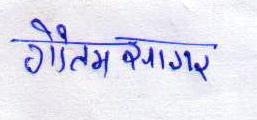 गौतम सागर